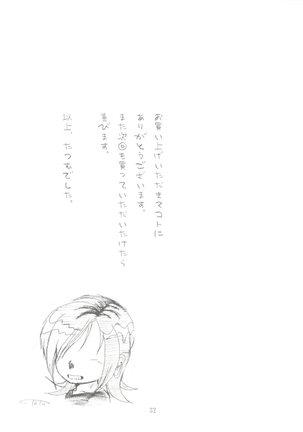 お買い上げいただきマコトに
ありがとうございます。
また次回も買っていただいたけたら
喜びます。
以上、たつむでした。
32